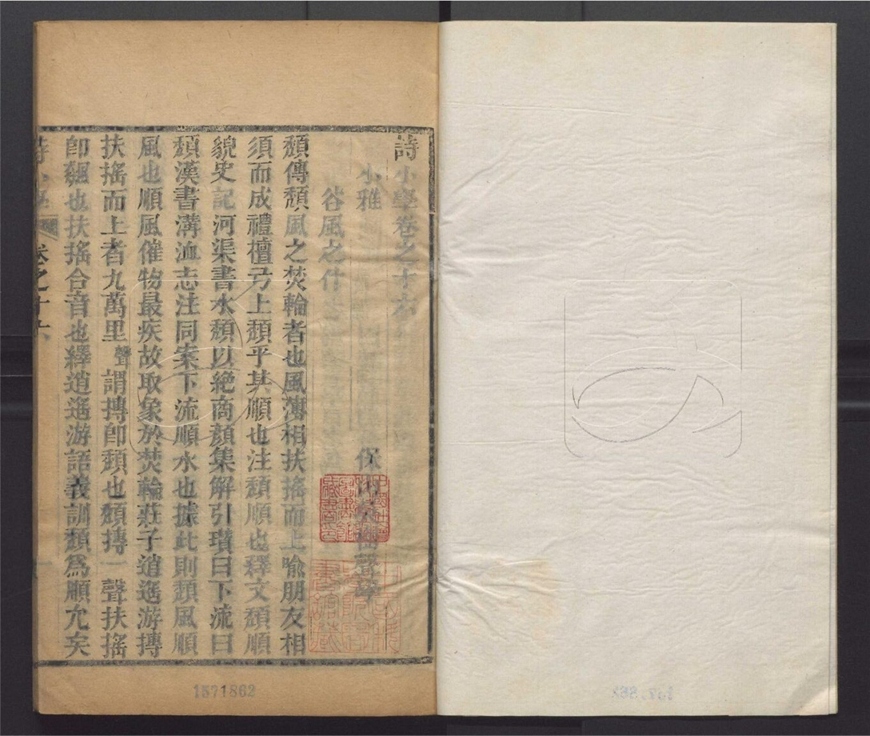 詩小學卷之十六
小雅
保山吳樹聲
谷風之什
頹傳頹風之焚輪者也風薄相扶搖而上喻朋友相
須而成禮檀弓上頹乎其順也注頹順也釋文頹順
貌史記河渠書水頹以絶商顔集解引瓚曰下流曰
頹漢書溝洫志注同案下流順水也據此則頹風順
風也順風催物最疾故取象於焚輪莊子逍遙游摶
扶搖而上者九萬里聲謂摶卽頹也頹摶一聲扶搖
卽飆也扶搖合音也繹逍遙游語義訓頹爲順允矣
詩小學 卷之十六
1371862